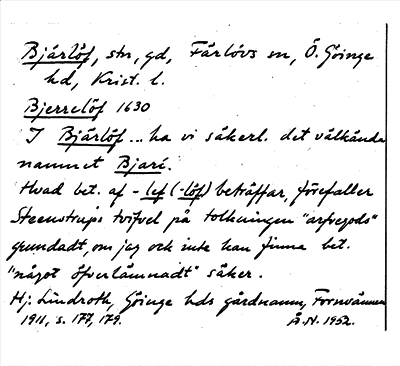 Bjärlöf, stn, gd, Färlövs sn, Ö. Göinge
hd, Krist. l.
Bjerrelöf 1630
I Bjärlöf ... ha vi säkerl. det välkända
namnet Bjari.
Hvad bet. af -lef (-löf) beträffar, förefaller
Steenstrups tvifvel på tolkningen "arfvegods"
grundadt, om jag ock inte kan finna bet.
"något öfverlämnadt" säker.
Hj. Lindroth, Göinge hds gårdnamn, Fornvännen
1911, s. 177, 179. Å.N. 1952.